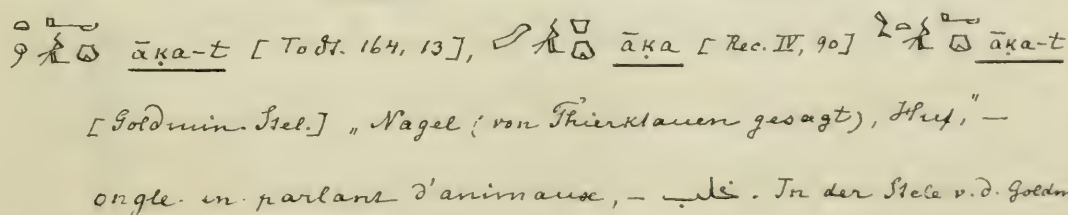 āḳa-t [Todt. 164, 13], āḳa [Rec. IV, 90] āḳa-t
[Goldmin. Stel.] „Nagel (von Thierklauen gesagt), Huf," —
ongle en parlant d'animaux, — خلب. In der Stele v. d. Goldm